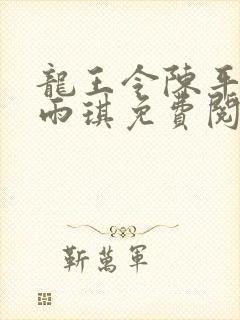 龍王令陳平
雨琪免費閱
靳萬軍